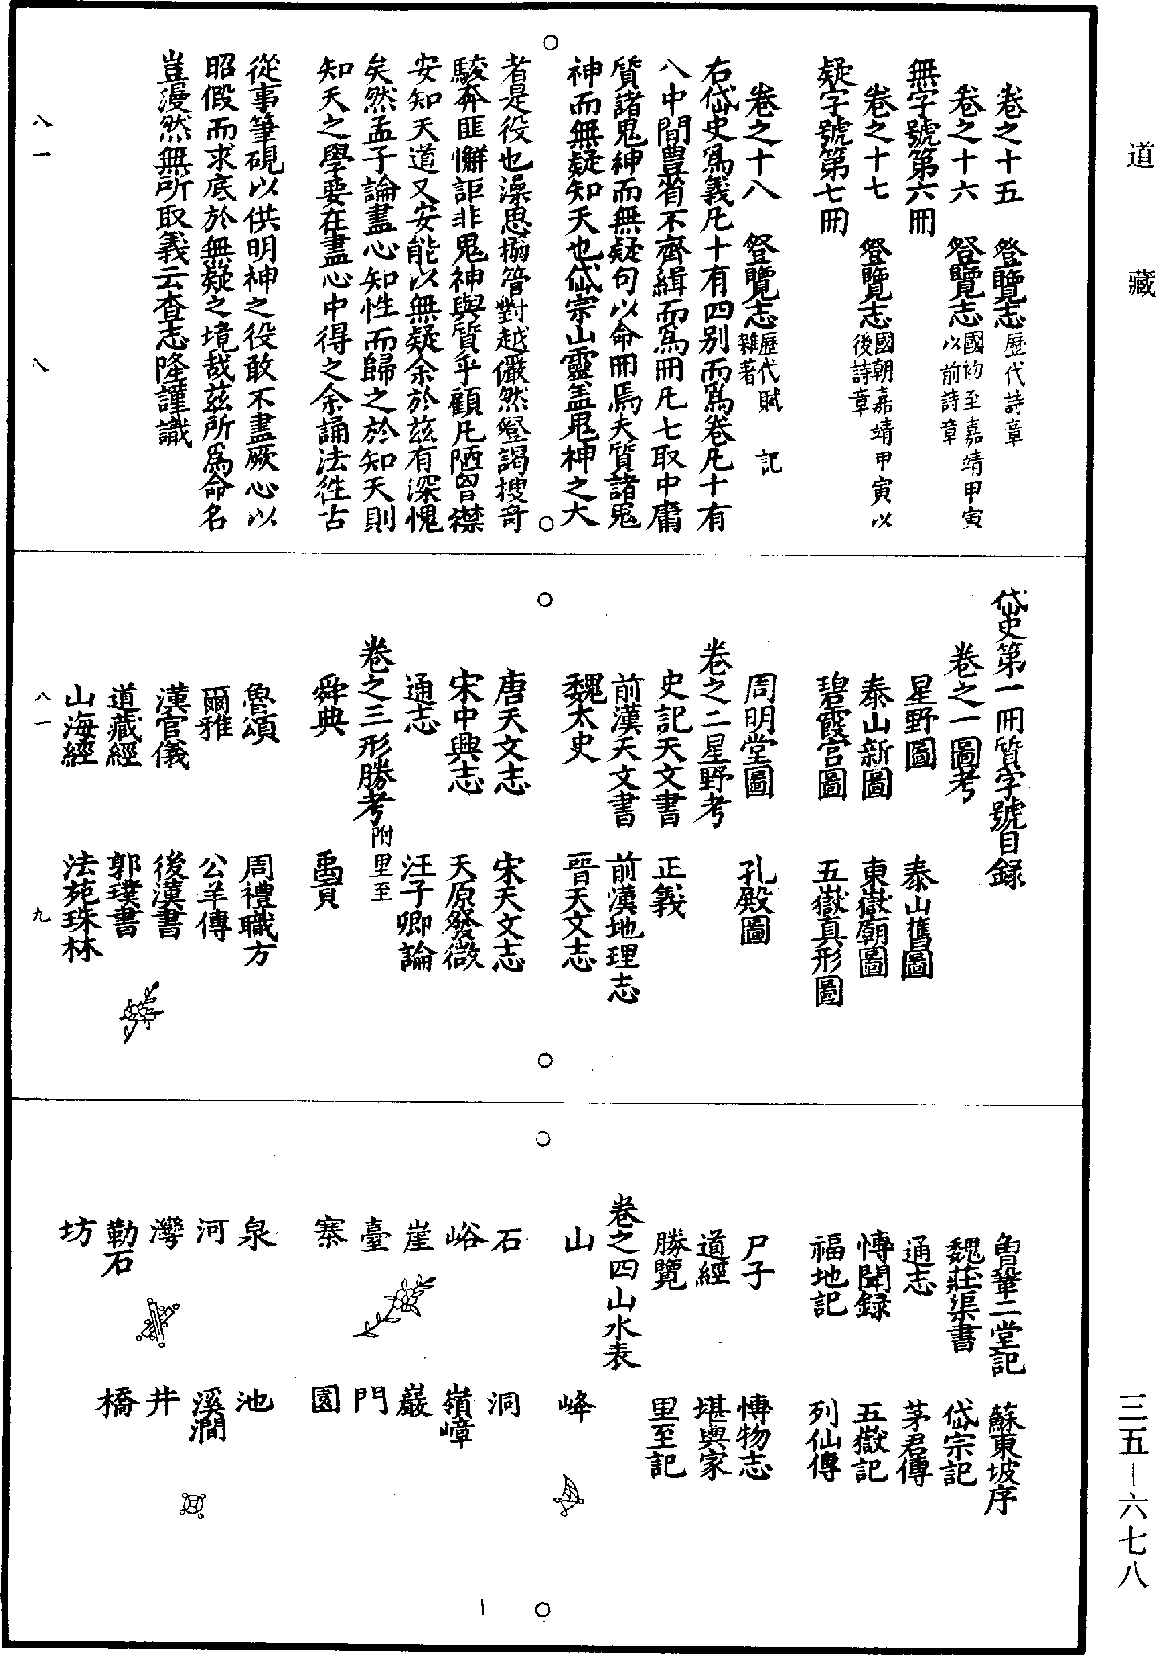 道藏
卷之十五　登覽志歷代詩章
卷之十六　登覽志國初至嘉靖甲寅以前詩章
無字號第六冊
卷之十七　登覽志國朝嘉靖甲寅以後詩章
疑字號第七冊
卷之十八　登覽志歷代賦　記雜著
右岱史爲義凡十有四别而爲卷凡十有
八中間豊省不齊緝而爲冊凡七取中庸
質諸鬼神而無疑句以命冊焉夫質諸鬼
神而無疑知天也岱宗山靈盖鬼神之大
者是役也澡思搦管對越儼然登謁搜奇
駿奔匪懈詎非鬼神與質乎顧凡陋曾襟
安知天道又安能以無疑余於兹有深愧
矣然孟子論盡心知性而歸之於知天則
知天之學要在盡心中得之余誦法徃古
從事筆硯以供明神之役敢不盡厥心以
昭假而求底於無疑之境哉兹所爲命名
豈漫然無所取義云查志隆謹識
八一　八
岱史第一冊質字號目録
卷之一圖考
星野圖　泰山舊圖
泰山新圖　東嶽廟圖
碧霞宫圖　五嶽真形圖
周明堂圖　孔殿圖
卷之二星野考
史記天文書　正義
前漢天文書　前漢地理志
魏太史　晉天文志
唐天文志　宋天文志
宋中興志　天原發微
通志　汪子卿論
卷之三形勝考附里至
舜典　禹貢
魯頌　周禮職方
爾雅　公羊傳
漢官儀　後漢書
道藏經　郭璞書
山海經　法苑珠林
八一　九
魯肇二堂記　蘇東坡序
魏莊渠書　岱宗記
通志　茅君傳
愽聞録　五嶽記
福地記　列仙傳
尸子　愽物志
道經　堪輿家
勝覽　里至記
卷之四山水表
山　峰
石　洞
峪　嶺嶂
崖　巖
臺　門
寨　園
泉　池
河　溪澗
灣　井
勒石　橋
坊
三五—六七八